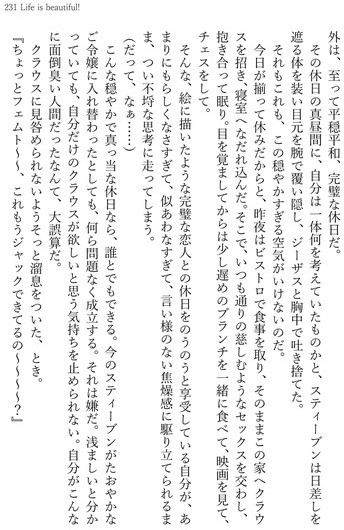 231 Life is beautiful!
外は、至って平穏平和、完璧な休日だ。
その休日の真昼間に、自分は一体何を考えていたものかと、スティーブンは日差しを
遮る体を装い目元を腕で覆い隠し、ジーザスと胸中で吐き捨てた。
それもこれも、この穏やかすぎる空気がいけないのだ。
今日が揃って休みだからと、昨夜はビストロで食事を取り、そのままこの家へクラウ
スを招き、寝室へなだれ込んだ。そこで、いつも通りの慈しむようなセックスを交わし、
抱き合って眠り。目を覚ましてからは少し遅めのブランチを一緒に食べて、映画を見て、
チェスをして。
そんな、絵に描いたような完璧な恋人との休日をのうのうと享受している自分が、あ
まりにもらしくなさすぎて、似あわなすぎて、言い様のない焦燥感に駆り立てられるま
ま、つい不埒な思考に走ってしまう。
(だって、なぁ……)
こんな穏やかで真っ当な休日なら、誰とでもできる。今のスティーブンがたおやかな
ご令嬢に入れ替わったとしても、何ら問題なく成立する。それは嫌だ。浅ましいと分か
っていても、自分だけのクラウスが欲しいと思う気持ちを止められない。自分がこんな
に面倒臭い人間だったなんて、大誤算だ。
クラウスに見咎められないようそっと溜息をついた、とき。
『ちょっとフェムト〜〜、これもうジャックできてるの〜〜〜〜？』